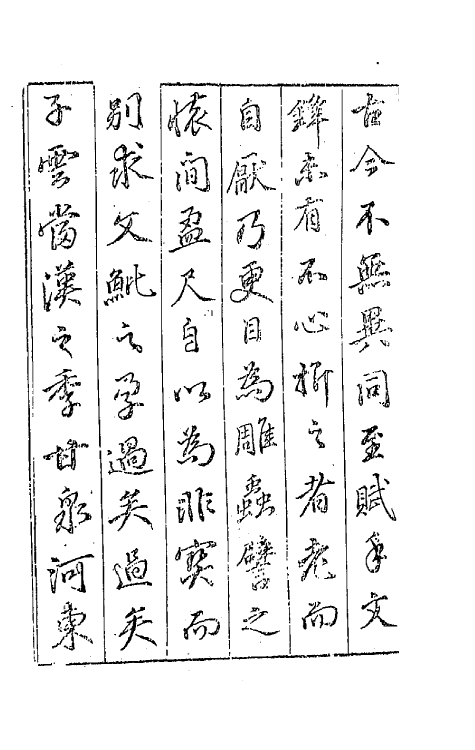 古今不無異同至賦手文
鋒未有不心折之者老而
自厭乃更目為雕蟲譬之
懷間盈尺自以為非寶而
別求文魮之孕過矣過矣
子雲當漢之季甘泉河東